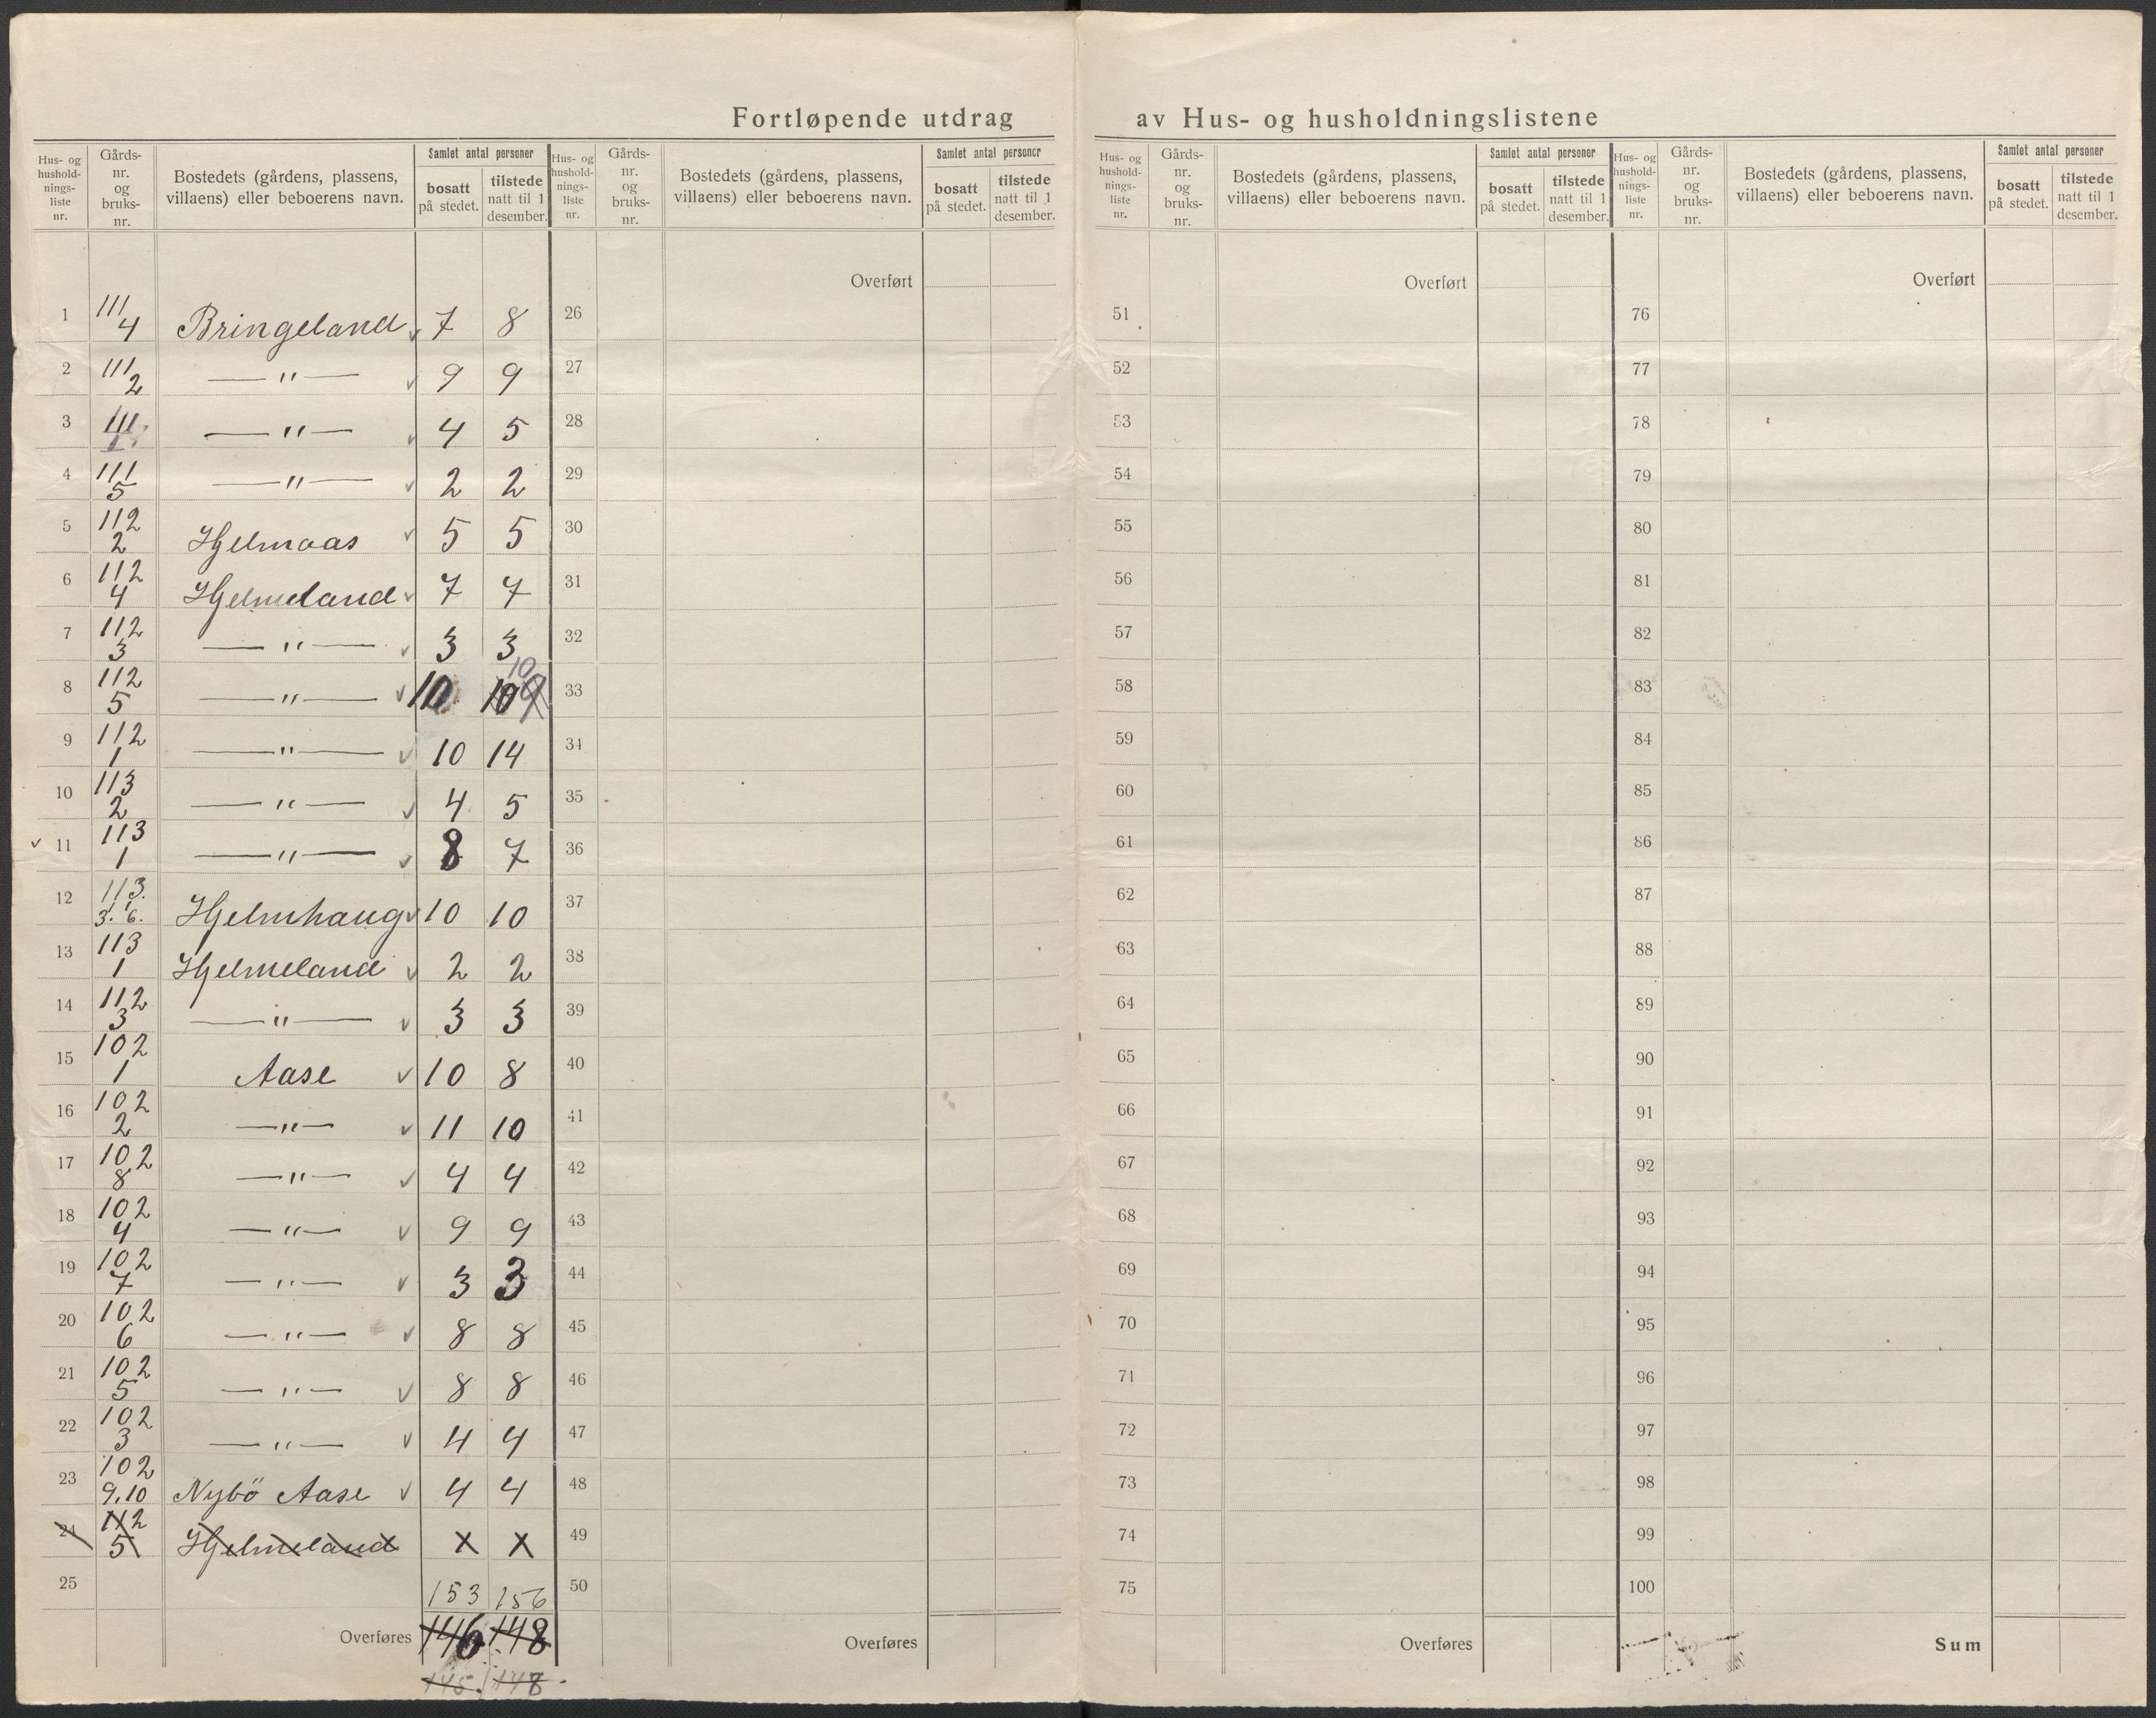 Fortløpende utdrag av Hus- og husholdningslistene
Hus- og
hushold-
nings-
liste
nr.
Gårds-
nr.
og
bruks-
nr.
Bostedets (gårdens, plassens,
villaens) eller beboerens navn.
Samlet antal personer
bosatt
på stedet.
tilstede
natt til 1
desember.
Hus- og
hushold-
nings-
liste
nr.
Gårds-
nr.
og
bruks-
nr.
Bostedets (gårdens, plassens,
villaens) eller beboerens navn.
Samlet antal personer
bosatt
på stedet.
tilstede
natt til 1
desember.
Hus- og
hushold-
nings-
liste
nr.
Gårds-
nr.
og
bruks-
nr.
Bostedets (gårdens, plassens,
villaens) eller beboerens navn.
Samlet antal personer
bosatt
på stedet.
tilstede
natt til 1
desember.
Hus- og
hushold-
nings-
liste
nr.
Gårds-
nr.
og
bruks-
nr.
Bostedets (gårdens, plassens,
villaens) eller beboerens navn.
Samlet antal personer
bosatt
på stedet.
tilstede
natt til 1
desember.
Overført Overført Overført
1 111/4 Bringeland 7 8 26 51 76
2 111/2 —"— 9 9 27 52 77
3 111/1 —"— 4 5 28 53 78
4 111/5 —"— 2 2 29 54 79
5 112/2 Hjelmaas 5 5 30 55 80
6 112/4 Hjelmeland 7 7 31 56 81
7 112/3 —"— 3 3 32 57 82
8 112/5 —"— 10 10 9 10 33 58 83
9 112/1 —"— 10 14 34 59 84
10 113/2 —"— 4 5 35 60 85
11 113/1 —"— 8 7 36 61 86
12 113/3. 6. Hjelmhaug 10 10 37 62 87
13 113/1 Hjelmeland 2 2 38 63 88
14 112/3 —"— 3 3 39 64 89
15 102/1 Aase 10 8 40 65 90
16 102/2 —"— 11 10 41 66 91
17 102/8 —"— 4 4 42 67 92
18 102/4 —"— 9 9 43 68 93
19 102/7 —"— 3 3 44 69 94
20 102/6 —"— 8 8 45 70 95
21 102/5 —"— 8 8 46 71 96
22 102/3 —"— 4 4 47 72 97
23 102/9.10 Nybö Aase 4 4 48 73 98
24 112/5 Hjelmeland x x 49 74 99
25 153 156 50 75 100
Overføres 146 148 Overføres Overføres Sum
145. 148